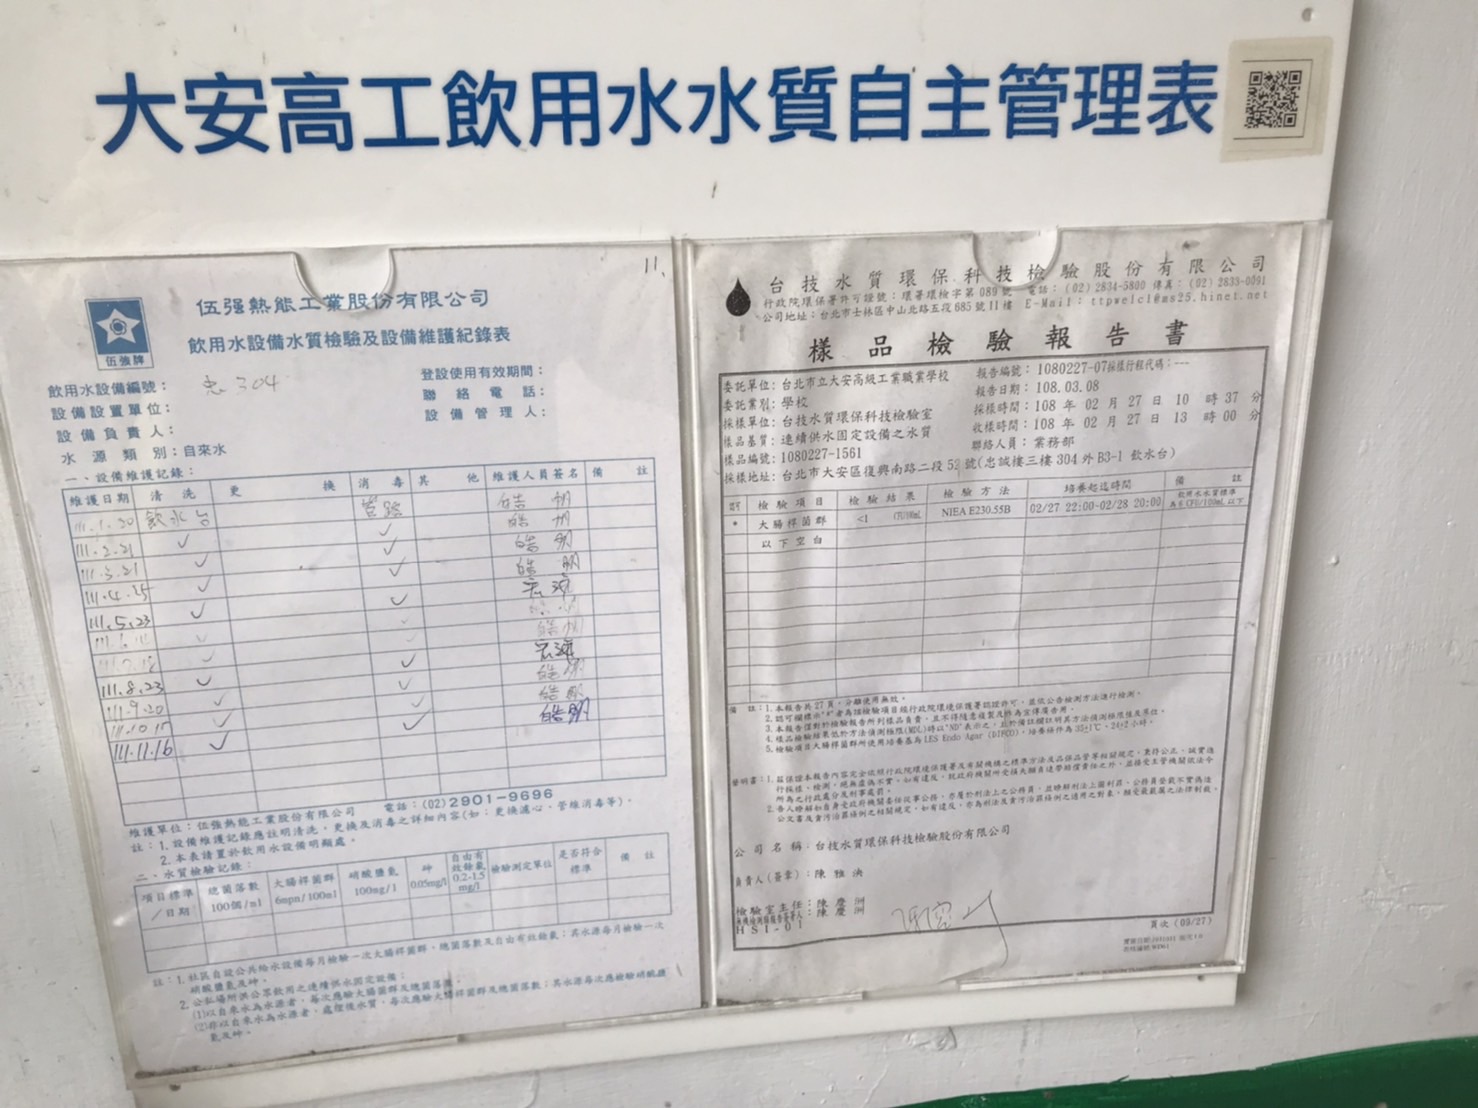 大安高工飲用水水質自主管理表
11.
伍強牌
伍强熱能工業股份有限公司
飲用水設備水質檢驗及設備維護紀錄表
飲用水設備編號： 忠 304
登設使用有效期間：
設備設置單位：
聯絡電話：
設備負責人：
設備管理人：
水源類別：自來水
一、設備維護記錄：
維護日期 清洗 更換 消毒 其他 維護人員簽名 備註
111.1.20 飲水台 管路
111.2.21 ✓ ✓
111.3.21 ✓ ✓
111.4.25 ✓ ✓
111.5.23 ✓ ✓
111.8.23 ✓ ✓
111.9.20 ✓ ✓
111.10.17 ✓ ✓
111.11.16 ✓ ✓
維護單位：伍強熱能工業股份有限公司 電話：(02)2901-9696
註：1.設備維護記錄應註明清洗、更換及消毒之詳細內容(如：更換濾心、管維消毒等)。
2.本表請置於飲用水設備明顯處。
二、水質檢驗記錄：
項目標準／日期 總菌落數 100個/ml 大腸桿菌群 6mpn/100ml 硝酸鹽氮 100mg/l 砷 0.05mg/l 自由有效餘氯 0.2-1.5 mg/l 檢驗測定單位 是否符合標準 備註
註：1.社區自設公共給水設備每月檢驗一次大腸桿菌群、總菌落數及自由有效餘氯；其水源每月檢驗一次
硝酸鹽氮及砷。
2.公私場所供公眾飲用之連續供水固定設備：
(1)以自來水為水源者，每次應驗大腸菌群及總菌落數。
(2)非以自來水為水源者，處理後水質，每次應驗大腸桿菌群及總菌落數；其水源每次應檢驗硝酸鹽
氮及砷。
台技水質環保科技檢驗股份有限公司
行政院環保署許可證號：環署環檢字第089號 電話：(02)2834-5800 傳真：(02)2833-0091
公司地址：台北市士林區中山北路五段685號11樓 E-Mail：ttpwelc1@ms25.hinet.net
樣品檢驗報告書
委託單位：台北市立大安高級工業職業學校
報告編號：1080227-07採樣行程代碼：---
委託業別：學校
報告日期：108.03.08
採樣單位：台技水質環保科技檢驗室
採樣時間：108 年 02 月 27 日 10 時 37 分
樣品基質：連續供水固定設備之水質
收樣時間：108 年 02 月 27 日 13 時 00 分
樣品編號：1080227-1561
聯絡人員：業務部
採樣地址：台北市大安區復興南路二段52號(忠誠樓三樓304外B3-1 飲水台)
檢驗項目 檢驗結果 檢驗方法 培養起迄時間 備註
* 大腸桿菌群 <1 CFU/100mL NIEA E230.55B 02/27 22:00~02/28 20:00 飲用水水質標準為6 CFU/100mL以下
以下空白
備註：1.本報告共27頁，分離使用無效。
2.認可欄標示"*"者為該檢驗項目經行政院環境保護署認證許可，並依公告檢測方法進行檢測。
3.本報告僅對於檢驗報告所列樣品負責，且不得隨意複製及作為宣傳廣告用。
4.樣品檢驗結果低於方法偵測極限(MDL)時以"ND"表示之，並於備註欄註明其方法偵測極限值及單位。
5.檢驗項目大腸桿菌群所使用培養基為LES Endo Agar (DIFCO)，培養條件為35±1℃、24±2小時。
公司名稱：台技水質環保科技檢驗股份有限公司
負責人(簽章)：陳雅泱
檢驗室主任：陳慶洲
陳慶洲
HSI-01
頁次(09/27)